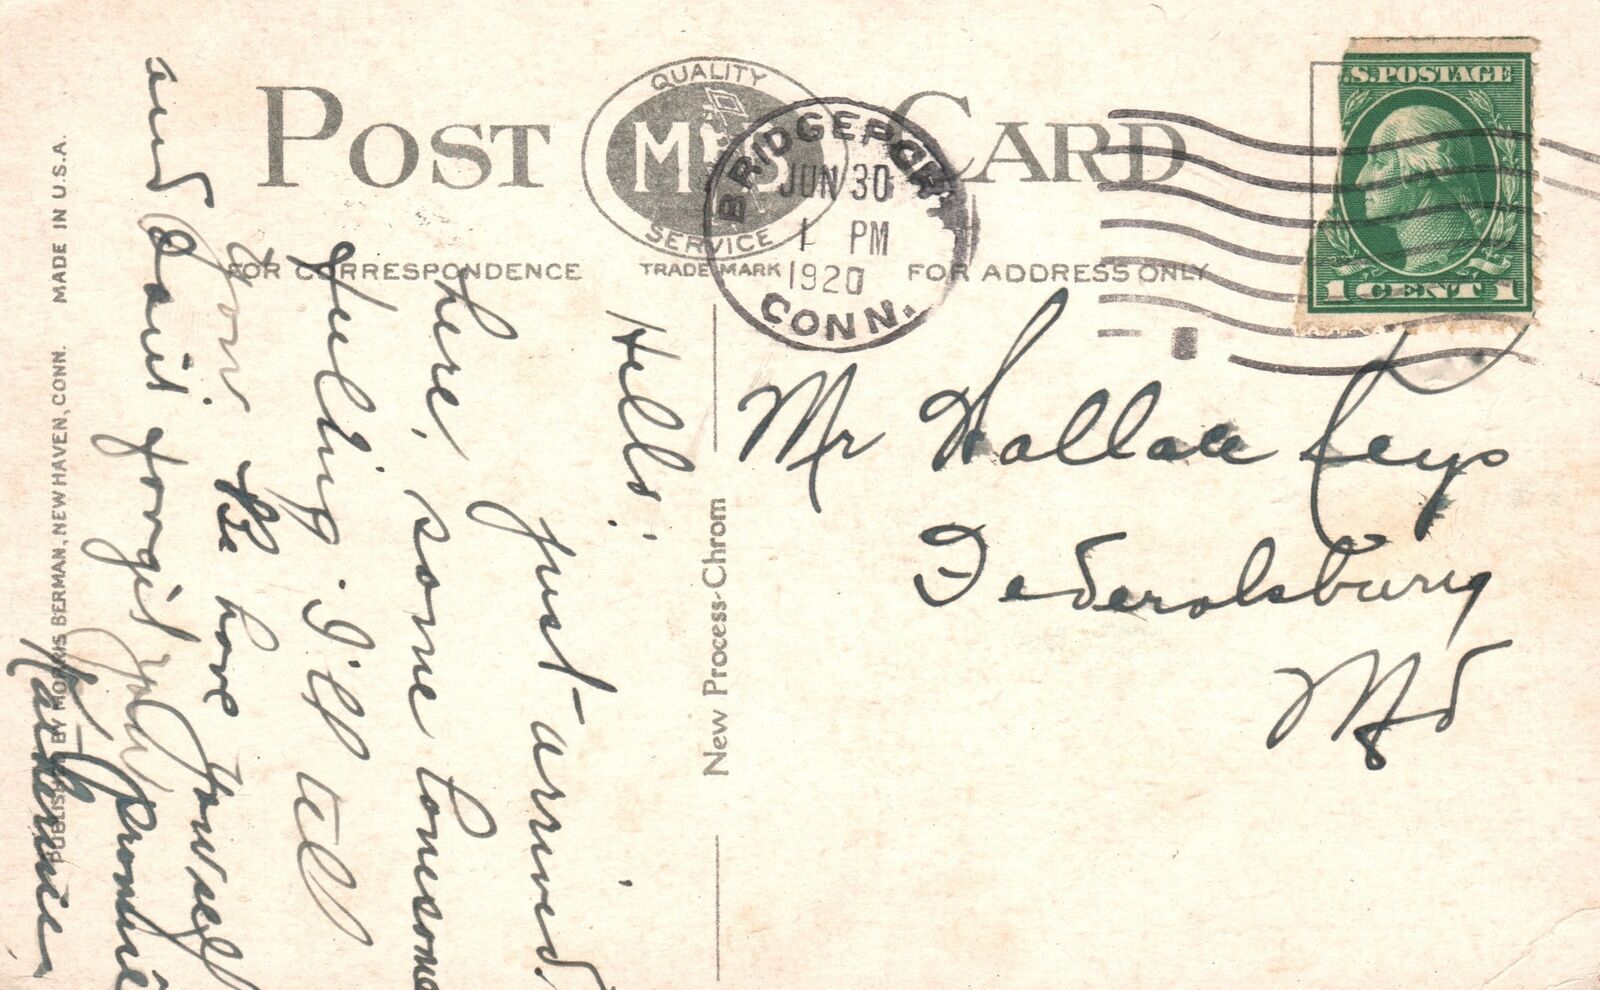 POST CARD
QUALITY
MB
SERVICE
TRADE MARK
FOR CORRESPONDENCE
FOR ADDRESS ONLY
BRIDGEPORT
JUN 30
1 PM
1920
CONN.
.S. POSTAGE
1 CENT 1
Mr Wallace Keys
Federalsburg
Md
Hello.
Just arrived.
here, some lonesome
feeling. I'll tell
you. Be have yourself
and don't forgit your promise
Katherine
New Process-Chrom
PUBLISHED BY MORRIS BERMAN, NEW HAVEN, CONN. MADE IN U.S.A.